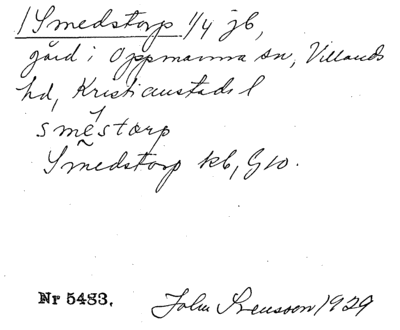 1 Smedstorp 1/4 jb,
gård i Oppmanna sn, Villands
hd, Kristianstads l
smestorp
Smedstorp kb, G10.
Nr 5483. John Svensson 1929